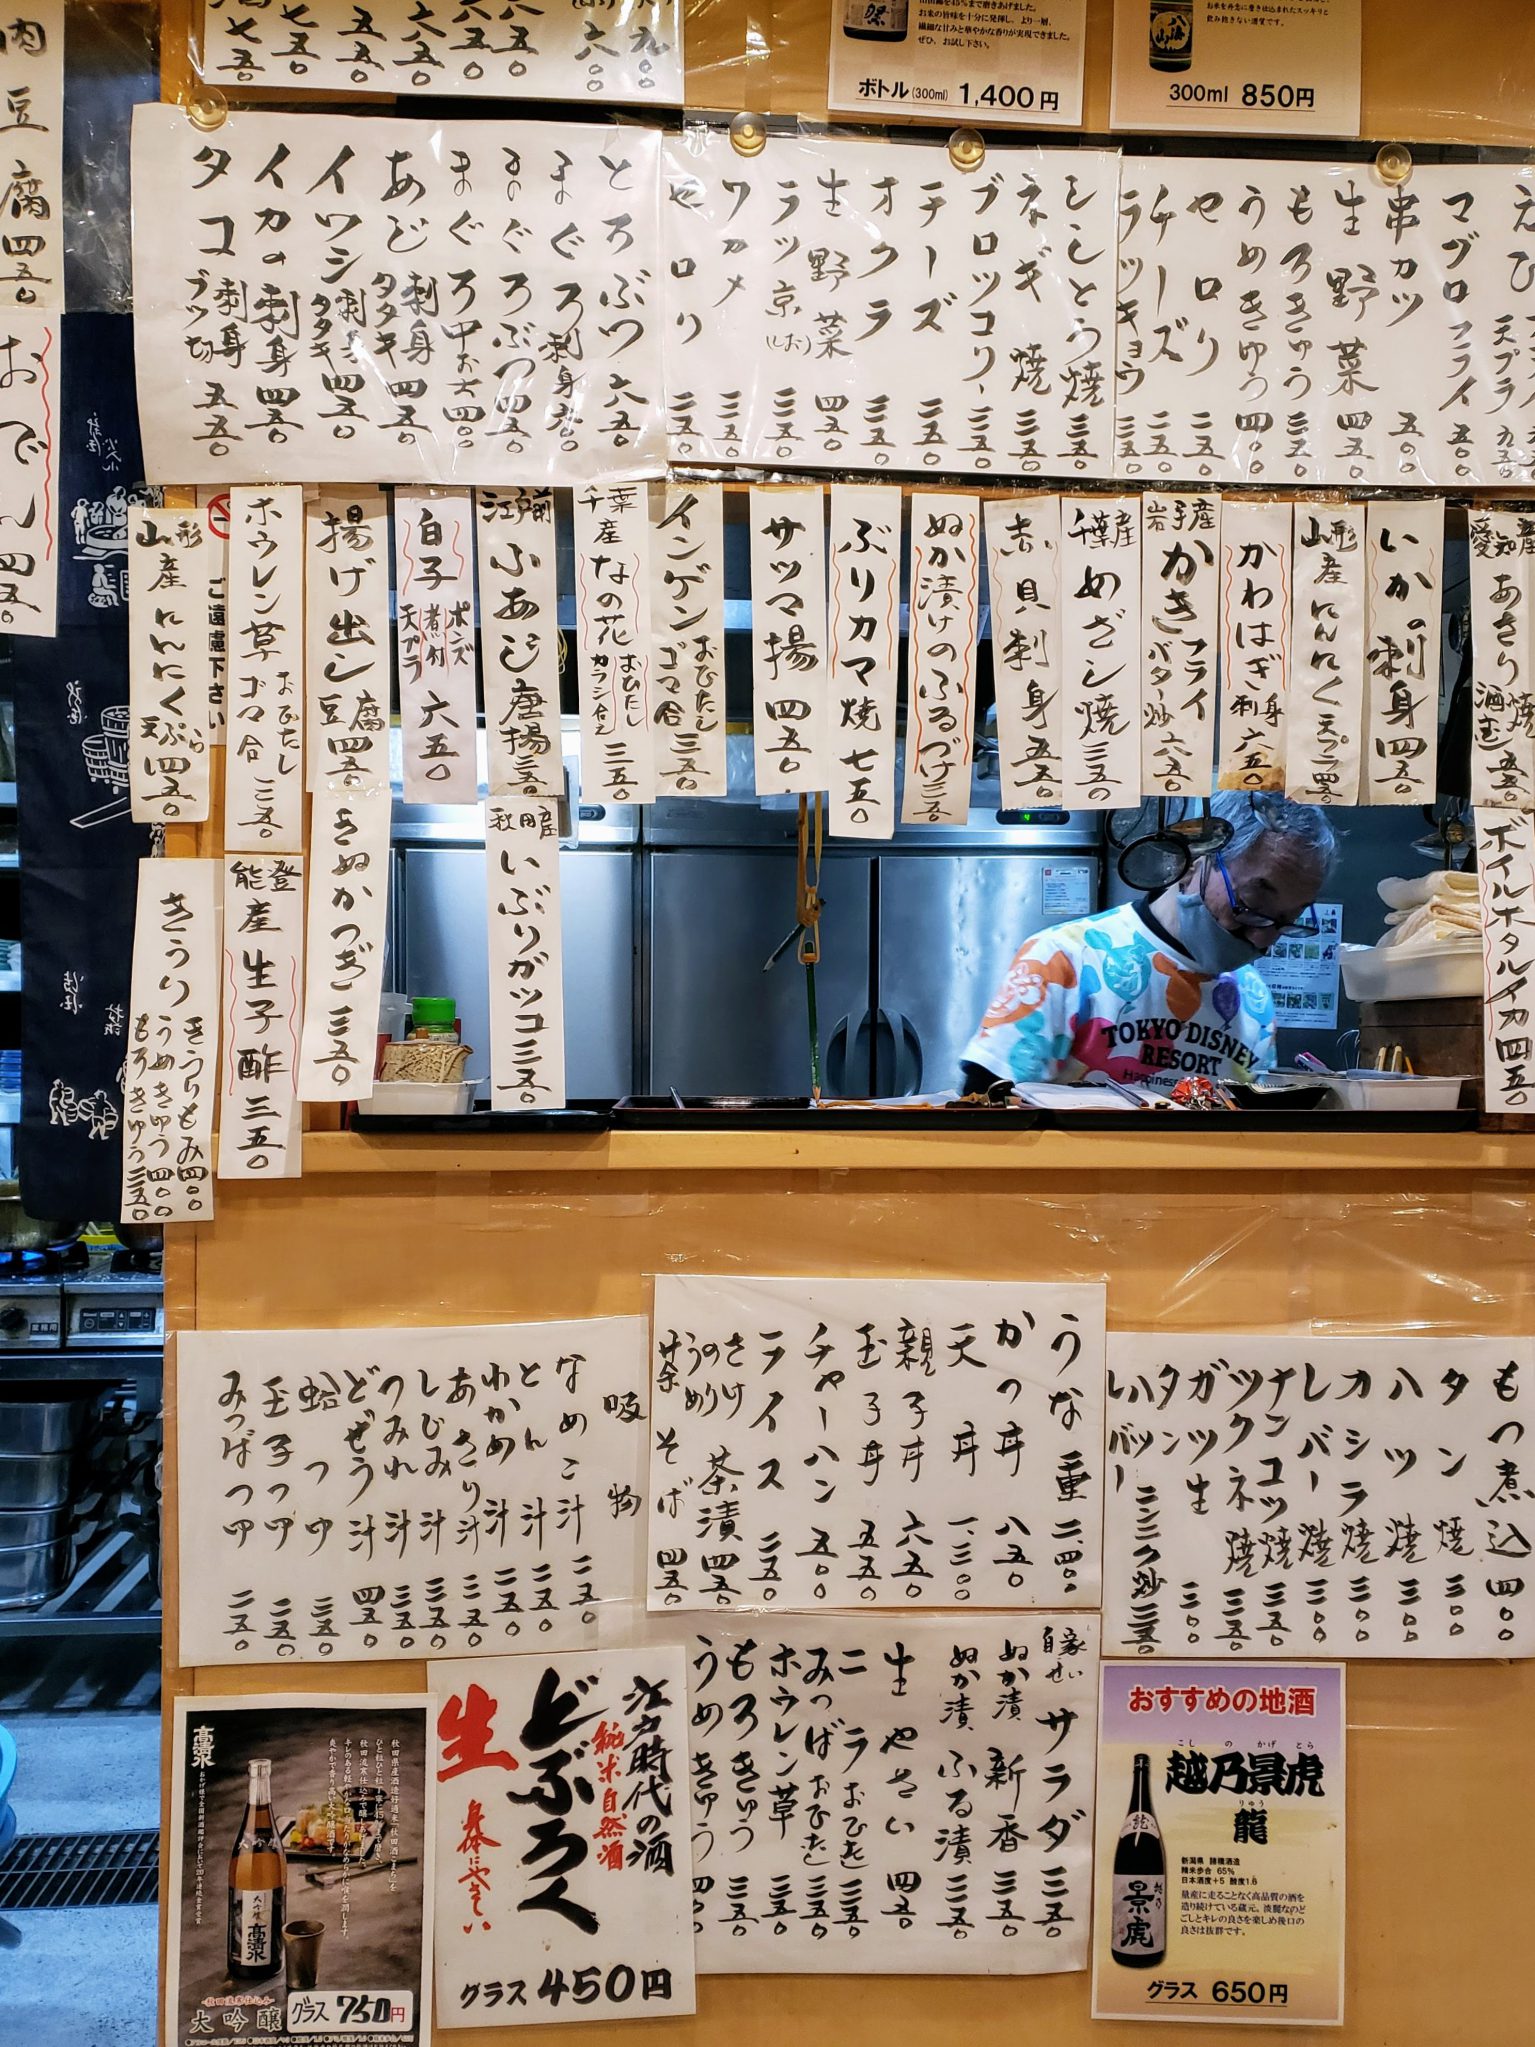 肉豆腐四五〇
おでん四五〇
ぜひ、お試し下さい。
ボトル(300ml) 1,400円
300ml 850円
とろぶつ 六五〇
まぐろ刺身
まぐろぶつ 四五〇
まぐろ中おち 四〇〇
あじ 刺身 タタキ 四五〇
イワシ 刺身 タタキ 四五〇
イカの刺身 四五〇
タコ 刺身 ブツ切 五五〇
ししとう焼 三五〇
ネギ焼 三五〇
ブロッコリー 三五〇
チーズ 二五〇
オクラ 三五〇
生野菜 四五〇
ラッ京(しお) 三五〇
ワカメ 三五〇
セロリ 二五〇
マグロフライ 五〇〇
串カツ 五〇〇
生野菜 四五〇
もろきゅう 三五〇
うめきゅう 四〇〇
セロリ 二五〇
チーズ 二五〇
ラッキョウ 三五〇
愛知産 あさり 焼 酒むし 五五〇
いかの刺身 四五〇
山形産 にんにく天プラ 四五〇
かわはぎ刺身 六五〇
岩手産 かき フライ バター炒 六五〇
千葉産 めざし焼 三五〇
赤貝刺身 五五〇
ぬか漬けのふるづけ 三五〇
ぶりカマ焼 七五〇
サツマ揚 四五〇
インゲン おひたし ゴマ合 三五〇
千葉産 なの花 おひたし カラシ合え 三五〇
江戸前 小あじ唐揚 三五〇
白子 ポンズ 煮付 天プラ 六五〇
揚げ出し豆腐 四五〇
ホウレン草 おひたし ゴマ合 三五〇
山形産 にんにく天ぷら 四五〇
ご遠慮下さい
ボイルホタルイカ 四五〇
秋田産 いぶりガッコ 三五〇
きぬかつぎ 三五〇
能登産 生子酢 三五〇
きうり きうりもみ 四〇〇 うめきゅう 四〇〇 もろきゅう 三五〇
TOKYO DISNEY
RESORT
吸物
なめこ汁 二五〇
とん汁 二五〇
わかめ汁 二五〇
あさり汁 三五〇
しじみ汁 三五〇
つみれ汁 三五〇
どぜう汁 四五〇
蛤つゆ 三五〇
玉子つゆ 二五〇
みつばつゆ 二五〇
うな重 二、四〇〇
かつ丼 八五〇
天丼 一、三〇〇
親子丼 六五〇
玉子丼 五五〇
チャーハン 五〇〇
ライス 二五〇
さけ のり うめ 茶漬 四五〇
そば 四五〇
もつ煮込 四〇〇
タン焼 三〇〇
ハツ焼 三〇〇
カシラ焼 三〇〇
レバー焼 三〇〇
ナンコツ焼 三五〇
ツクネ焼 三五〇
ガツ生 三〇〇
タン
ハツ
レバー
ニンニク炒 三五〇
自家せい サラダ 三五〇
ぬか漬 新香 三五〇
ぬか漬 ふる漬 三五〇
生やさい 四五〇
ニラおひたし 三五〇
みつばおひたし 三五〇
ホウレン草 三五〇
もろきゅう 三五〇
うめきゅう 四〇〇
高清水
大吟醸
グラス 750円
江戸時代の酒
純米自然酒
どぶろく
生
身体にやさしい
グラス 450円
おすすめの地酒
こしのかげとら
越乃景虎
りゅう
龍
新潟県 諸橋酒造
精米歩合 65%
日本酒度+5 酸度1.6
量産に走ることなく高品質の酒を
造り続けている蔵元。淡麗なのど
ごしとキレの良さを楽しめ後口の
良さは抜群です。
グラス 650円